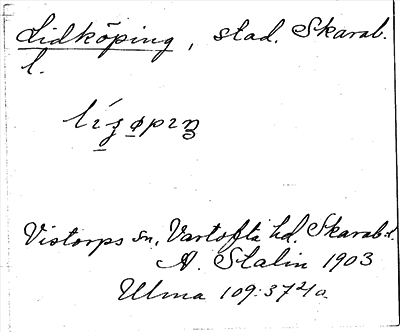 Lidköping, stad, Skarab.
l.
Vistorps sn, Vartofta hd. Skarab. l.
A. Stalin 1903
Ulma 109:37 a.